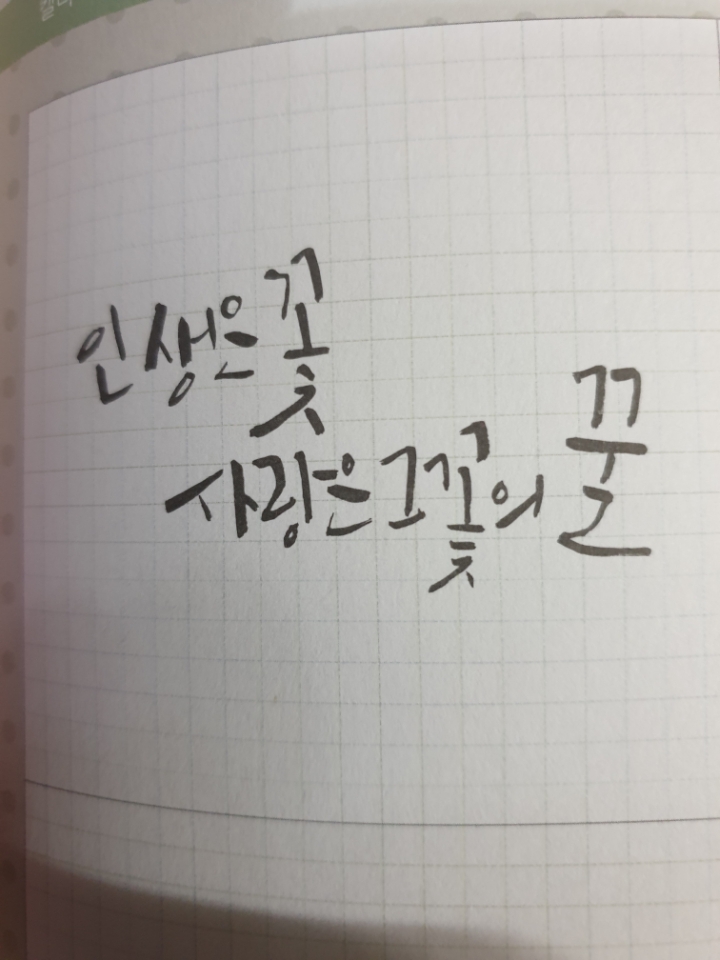 인생은 꽃
사랑은 그 꽃의 꿀